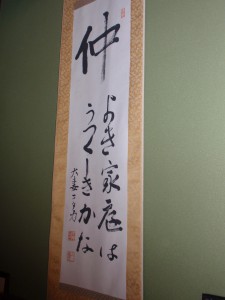 仲
よき家庭は
うつくしきかな